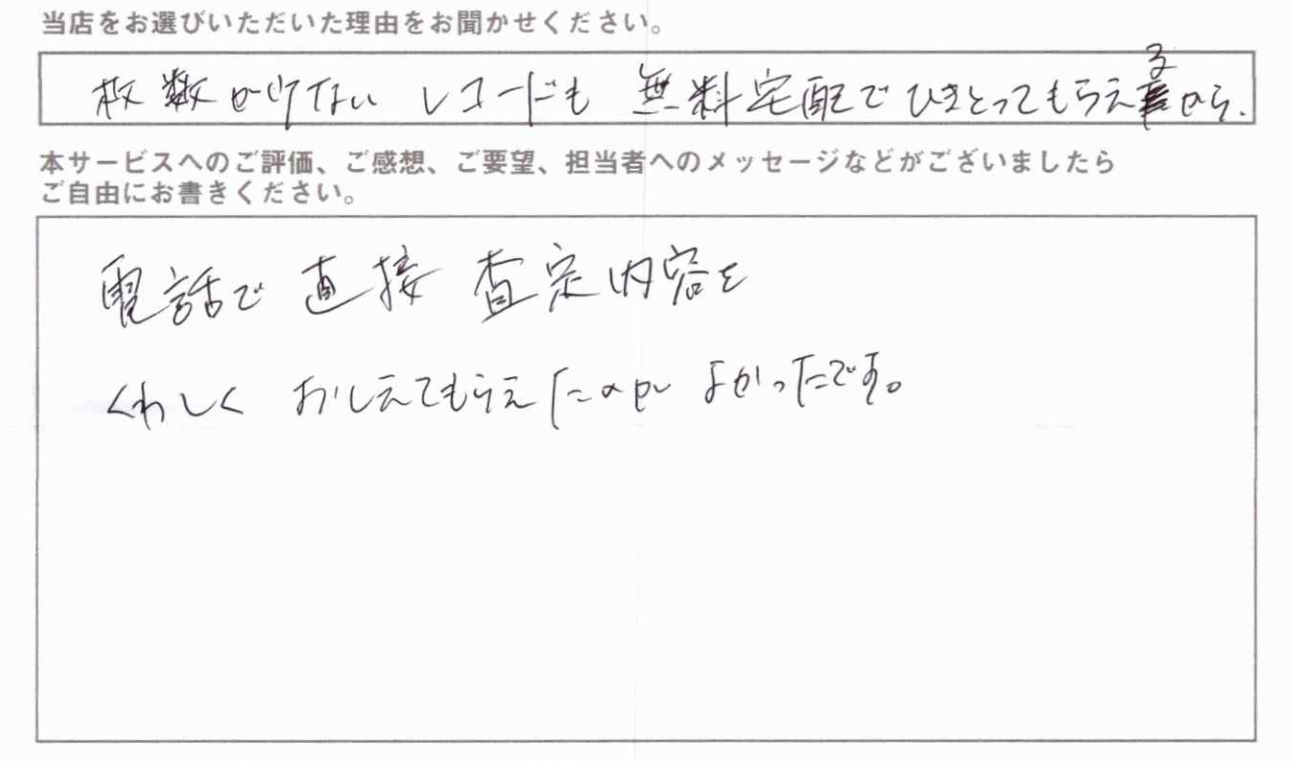 当店をお選びいただいた理由をお聞かせください。
枚数が少ない レコードも 無料宅配でひきとってもらえるから.
本サービスへのご評価、ご感想、ご要望、担当者へのメッセージなどがございましたら
ご自由にお書きください。
電話で 直接 査定内容を
くわしく おしえてもらえたのが よかったです。